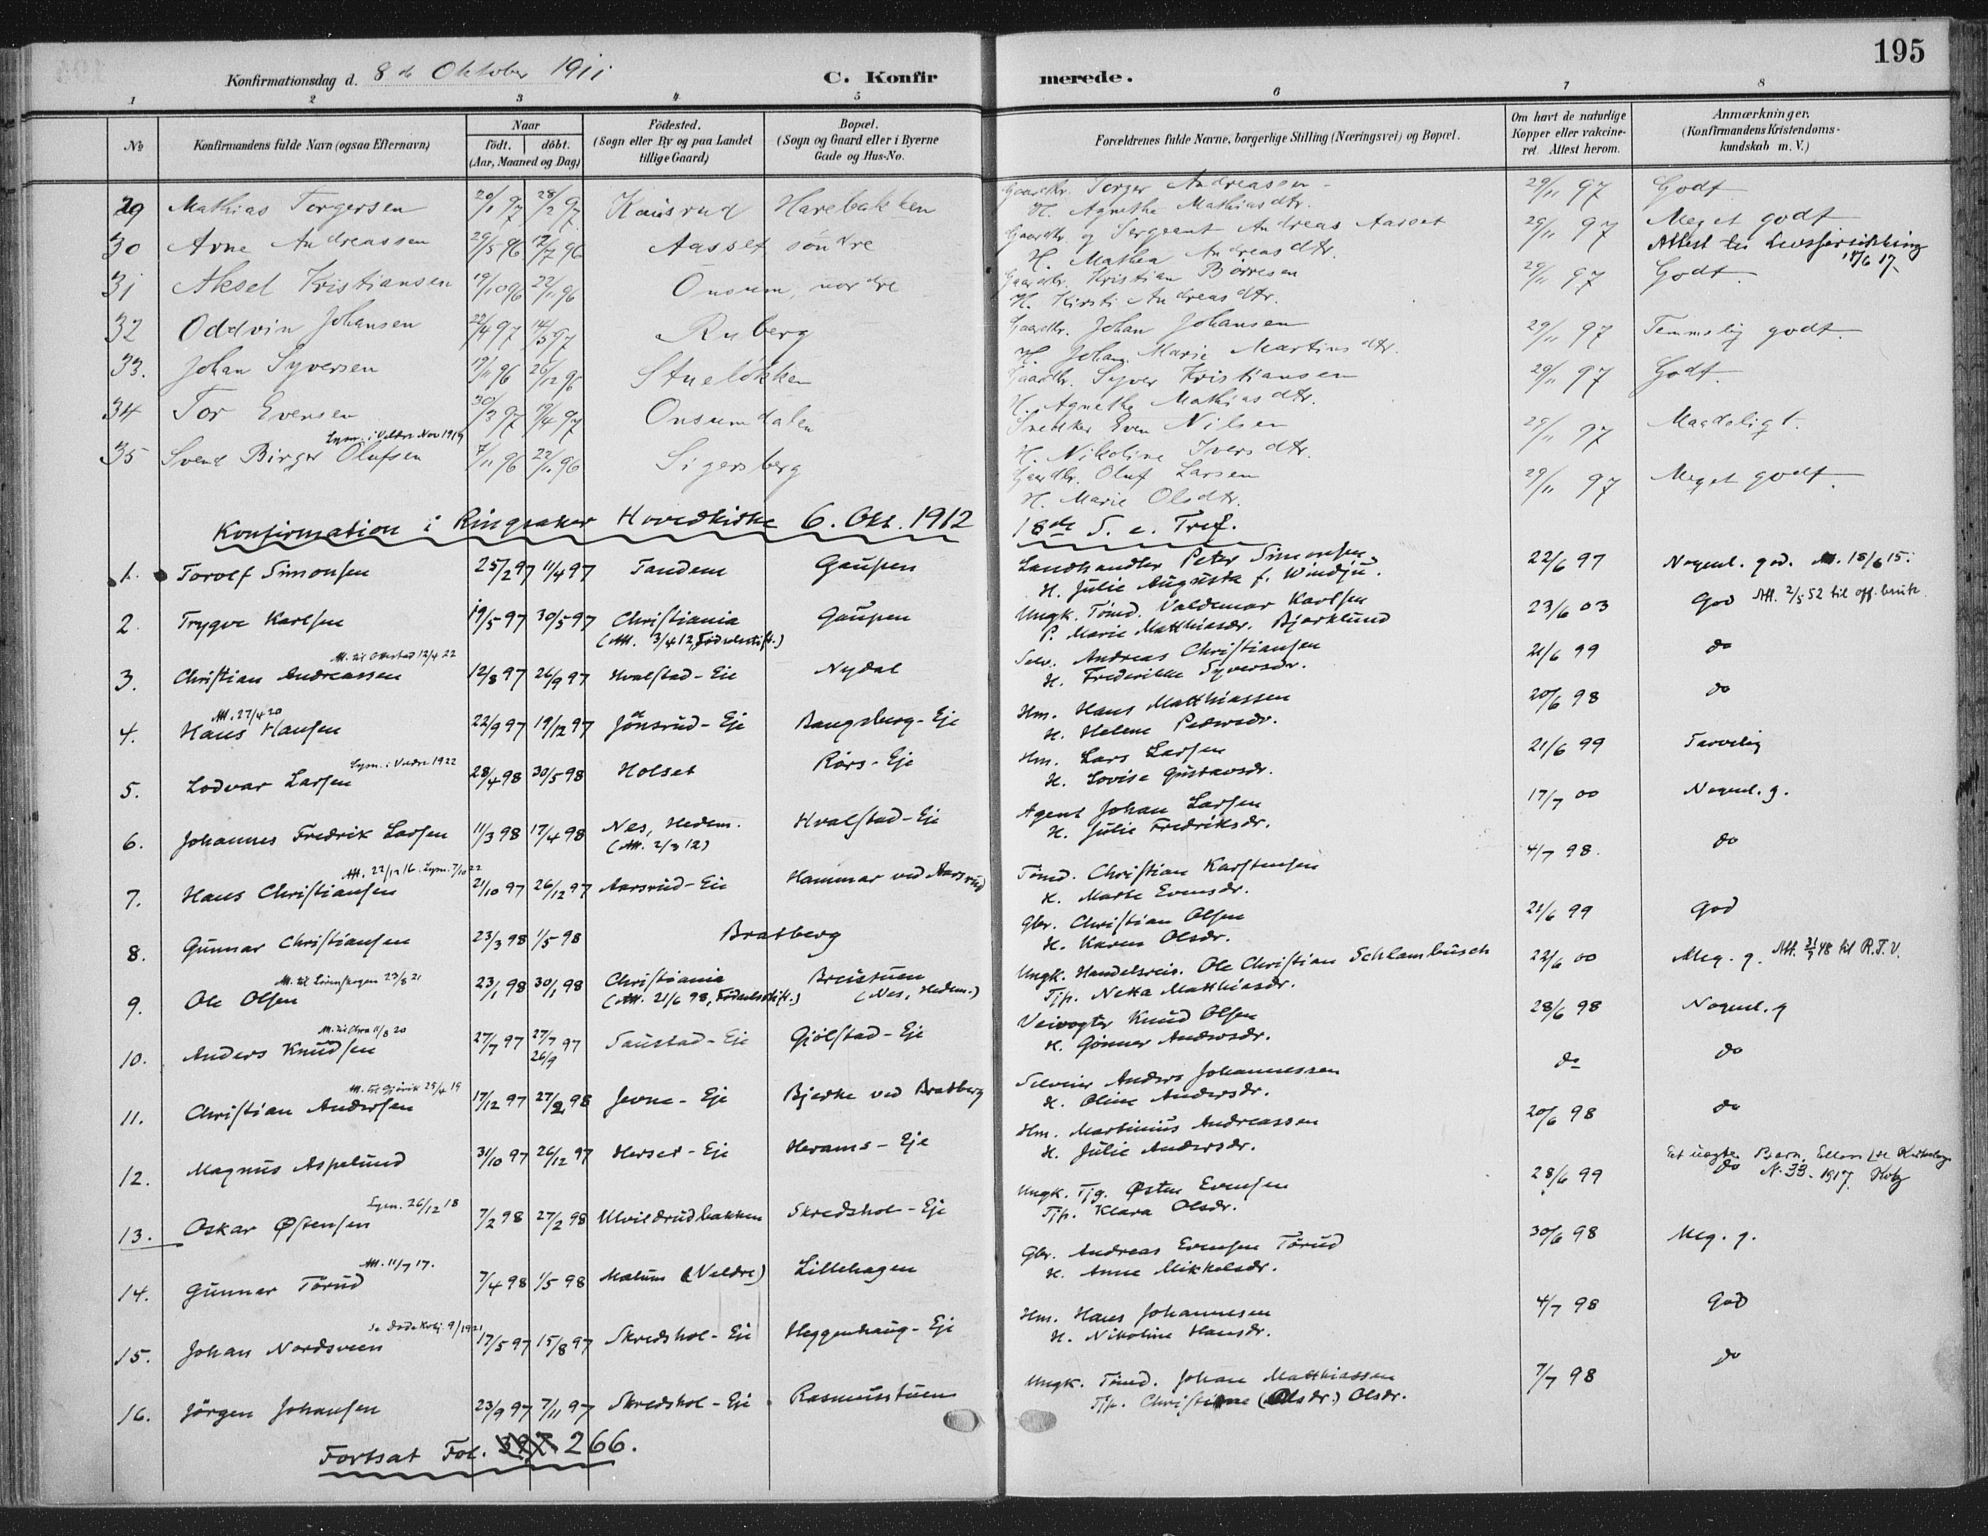 195
Konfirmationsdag d. 8 de Oktober 1911 C. Konfirmerede.
1 2 3 4 5 6 7 8
No
Konfirmandens fulde Navn (ogsaa Efternavn)
Naar
födt. döbt.
(Aar, Maaned og Dag)
Födested.
(Sogn eller By og paa Landet
tillige Gaard)
Bopæl.
(Sogn og Gaard eller i Byerne
Gade og Hus-No.
Forældrenes fulde Navne, borgerlige Stilling (Næringsvei) og Bopæl.
Om havt de naturlige
Kopper eller vakcine-
ret. Attest herom.
Anmærkninger.
(Konfirmandens Kristendoms-
kundskab m. V.)
29 Mathias Torgersen 20/1 97 28/2 97 Kausrud Harebakken Gaardbr. Torger Andreassen 29/11 97 Godt
H. Agnethe Mathiasdtr.
30 Arne Andreassen 29/5 96 12/7 96 Aasset søndre Gaardbr. og Sergeant Andreas Aasset 29/11 97 Meget godt
H. Mathea Andreasdtr. Attest til 18/6 17.
31 Aksel Kristiansen 19/10 96 22/11 96 Onsum, nordre Gaardbr. Kristian Börresen 29/11 97 Godt
H. Kirsti Andreasdtr.
32 Oddvin Johansen 22/4 97 14/5 97 Ruberg Gaardbr. Johan Johansen 29/11 97 Temmelig godt.
H. Johan. Marie Martinsdtr.
33. Johan Syversen 19/11 96 26/12 96 Stuelökken Gaardbr. Syver Kristiansen 29/11 97 Godt.
H. Agnethe Mathiasdtr.
34 Tor Evensen 30/3 97 19/4 97 Onsumdalen Snekker Even Nilsen 29/11 97 Maadeligt.
H. Nikoline Iversdtr.
Lysn. i Veldre Nov 1919
35 Svend Birger Olufsen 7/11 96 22/11 96 Sigersberg Gaardbr. Oluf Larsen 29/11 97 Meget godt.
H. Marie Olsdtr.
Konfirmation i Ringsaker Hovedkirke 6. Okt. 1912 18de S. e. Tref.
1. Torolf Simonsen 25/2 97 11/4 97 Tandem Gaupen Landhandler Peter Simonsen 22/6 97 Nogenl. god. 18/6 15.
H. Julie Augusta f. Windju.
2. Trygve Karlsen 19/5 97 30/5 97 Christiania Gaupen Ungk. Tömd. Valdemar Karlsen 23/6 03 God Att. 2/5 52 til off. bruk.
(Att. 3/4 12, Födselsstift.) P. Marie Matthiasdr. Bjørklund
Att. til Ottestad 12/4 22
3. Christian Andreassen 12/8 97 26/9 97 Hvalstad-Eie Nydal Selv. Andreas Christiansen 21/6 99 do
H. Frederikke Syversdr.
Att. 27/4 20
4. Hans Hansen 22/9 97 19/12 97 Jönsrud-Eje Bangsberg-Eje Hm. Hans Matthiassen 20/6 98 do
H. Helene Pedersdr.
Lysn. i Veldre 1922
5. Lodvar Larsen 28/4 98 30/5 98 Holset Rørs-Eje Hm. Lars Larsen 21/6 99 Tarvelig
H. Lovise Gustavsdr.
6. Johannes Fredrik Larsen 11/3 98 17/4 98 Nes, Hedem. Hvalstad-Eje Agent Johan Larsen 17/7 00 Nogenl. g.
(Att. 2/3 12) H. Julie Fredriksdr.
Att. 22/12 16. Lysn. 7/10 22
7. Hans Christiansen 2/10 97 26/12 97 Aarsrud-Eie Hammar ved Aarsrud Tömd. Christian Karstensen 4/7 98. do
H. Marte Evensdr.
8. Gunnar Christiansen 23/3 98 1/5 98 Bratberg Gbr. Christian Olsen 21/6 99 God
H. Karen Olsdr.
Att. til Lörenskogen 23/8 21
9. Ole Olsen 23/1 98 30/1 98 Christiania Breistuen Ungk. Handelsreis. Ole Christian Schlambusch 22/6 00 Meg. g. Att. 21/1 48 til R.T.V.
(Att. 21/6 98, Födselsstift.) (Nes, Hedem.) Tjp. Netta Matthiasdr.
Att. til Chra 11/8 20
10. Anders Knudsen 27/7 97 27/7 97 Saustad-Eje Gjölstad-Eje Veivogter Knud Olsen 28/6 98 Nogenl. g
26/9 H. Gönner Andersdr.
Att. til Gjövik 25/4 19
11. Christian Andersen 17/12 97 27/2 98 Jevne-Eje Bjerke ved Bratberg Selveier Anders Johannessen do do
H. Oline Andersdr.
12. Magnus Aspelund 31/10 97 26/12 97 Herset-Eje Herams-Eje Hm. Martinius Andreassen 20/6 98 do
H. Julie Andersdr.
Lysn. 26/12 18 Et uegte Barn,
13. Oskar Østensen 7/2 98 27/2 98 Ulvildrudbakken Skredshol-Eje Ungk. Tjg. Østen Evensen 28/6 99 do N. 33. 1917.
Tjp. Klara Olsdr.
Att. 11/7 17.
14. Gunnar Törud 7/4 98 1/5 98 Mælum (Veldre) Lillehagen Gbr. Andreas Evensen Törud 30/6 98 Meg. g.
H. Anne Mikkelsdr.
9/1921
15. Johan Nordsveen 17/5 97 15/8 97 Skredshol-Eie Heggenhaug-Eje Hm. Hans Johannesen 4/7 98 God
H. Nikoline Hansdr.
16. Jörgen Johansen 23/9 97 7/11 97 Skredshol-Eie Rasmusstuen Ungk. Tömd. Johan Matthiassen 7/7 98 do
Tjp. Christine (Olsdr.) Olsdr.
Fortsat Fol. 266.